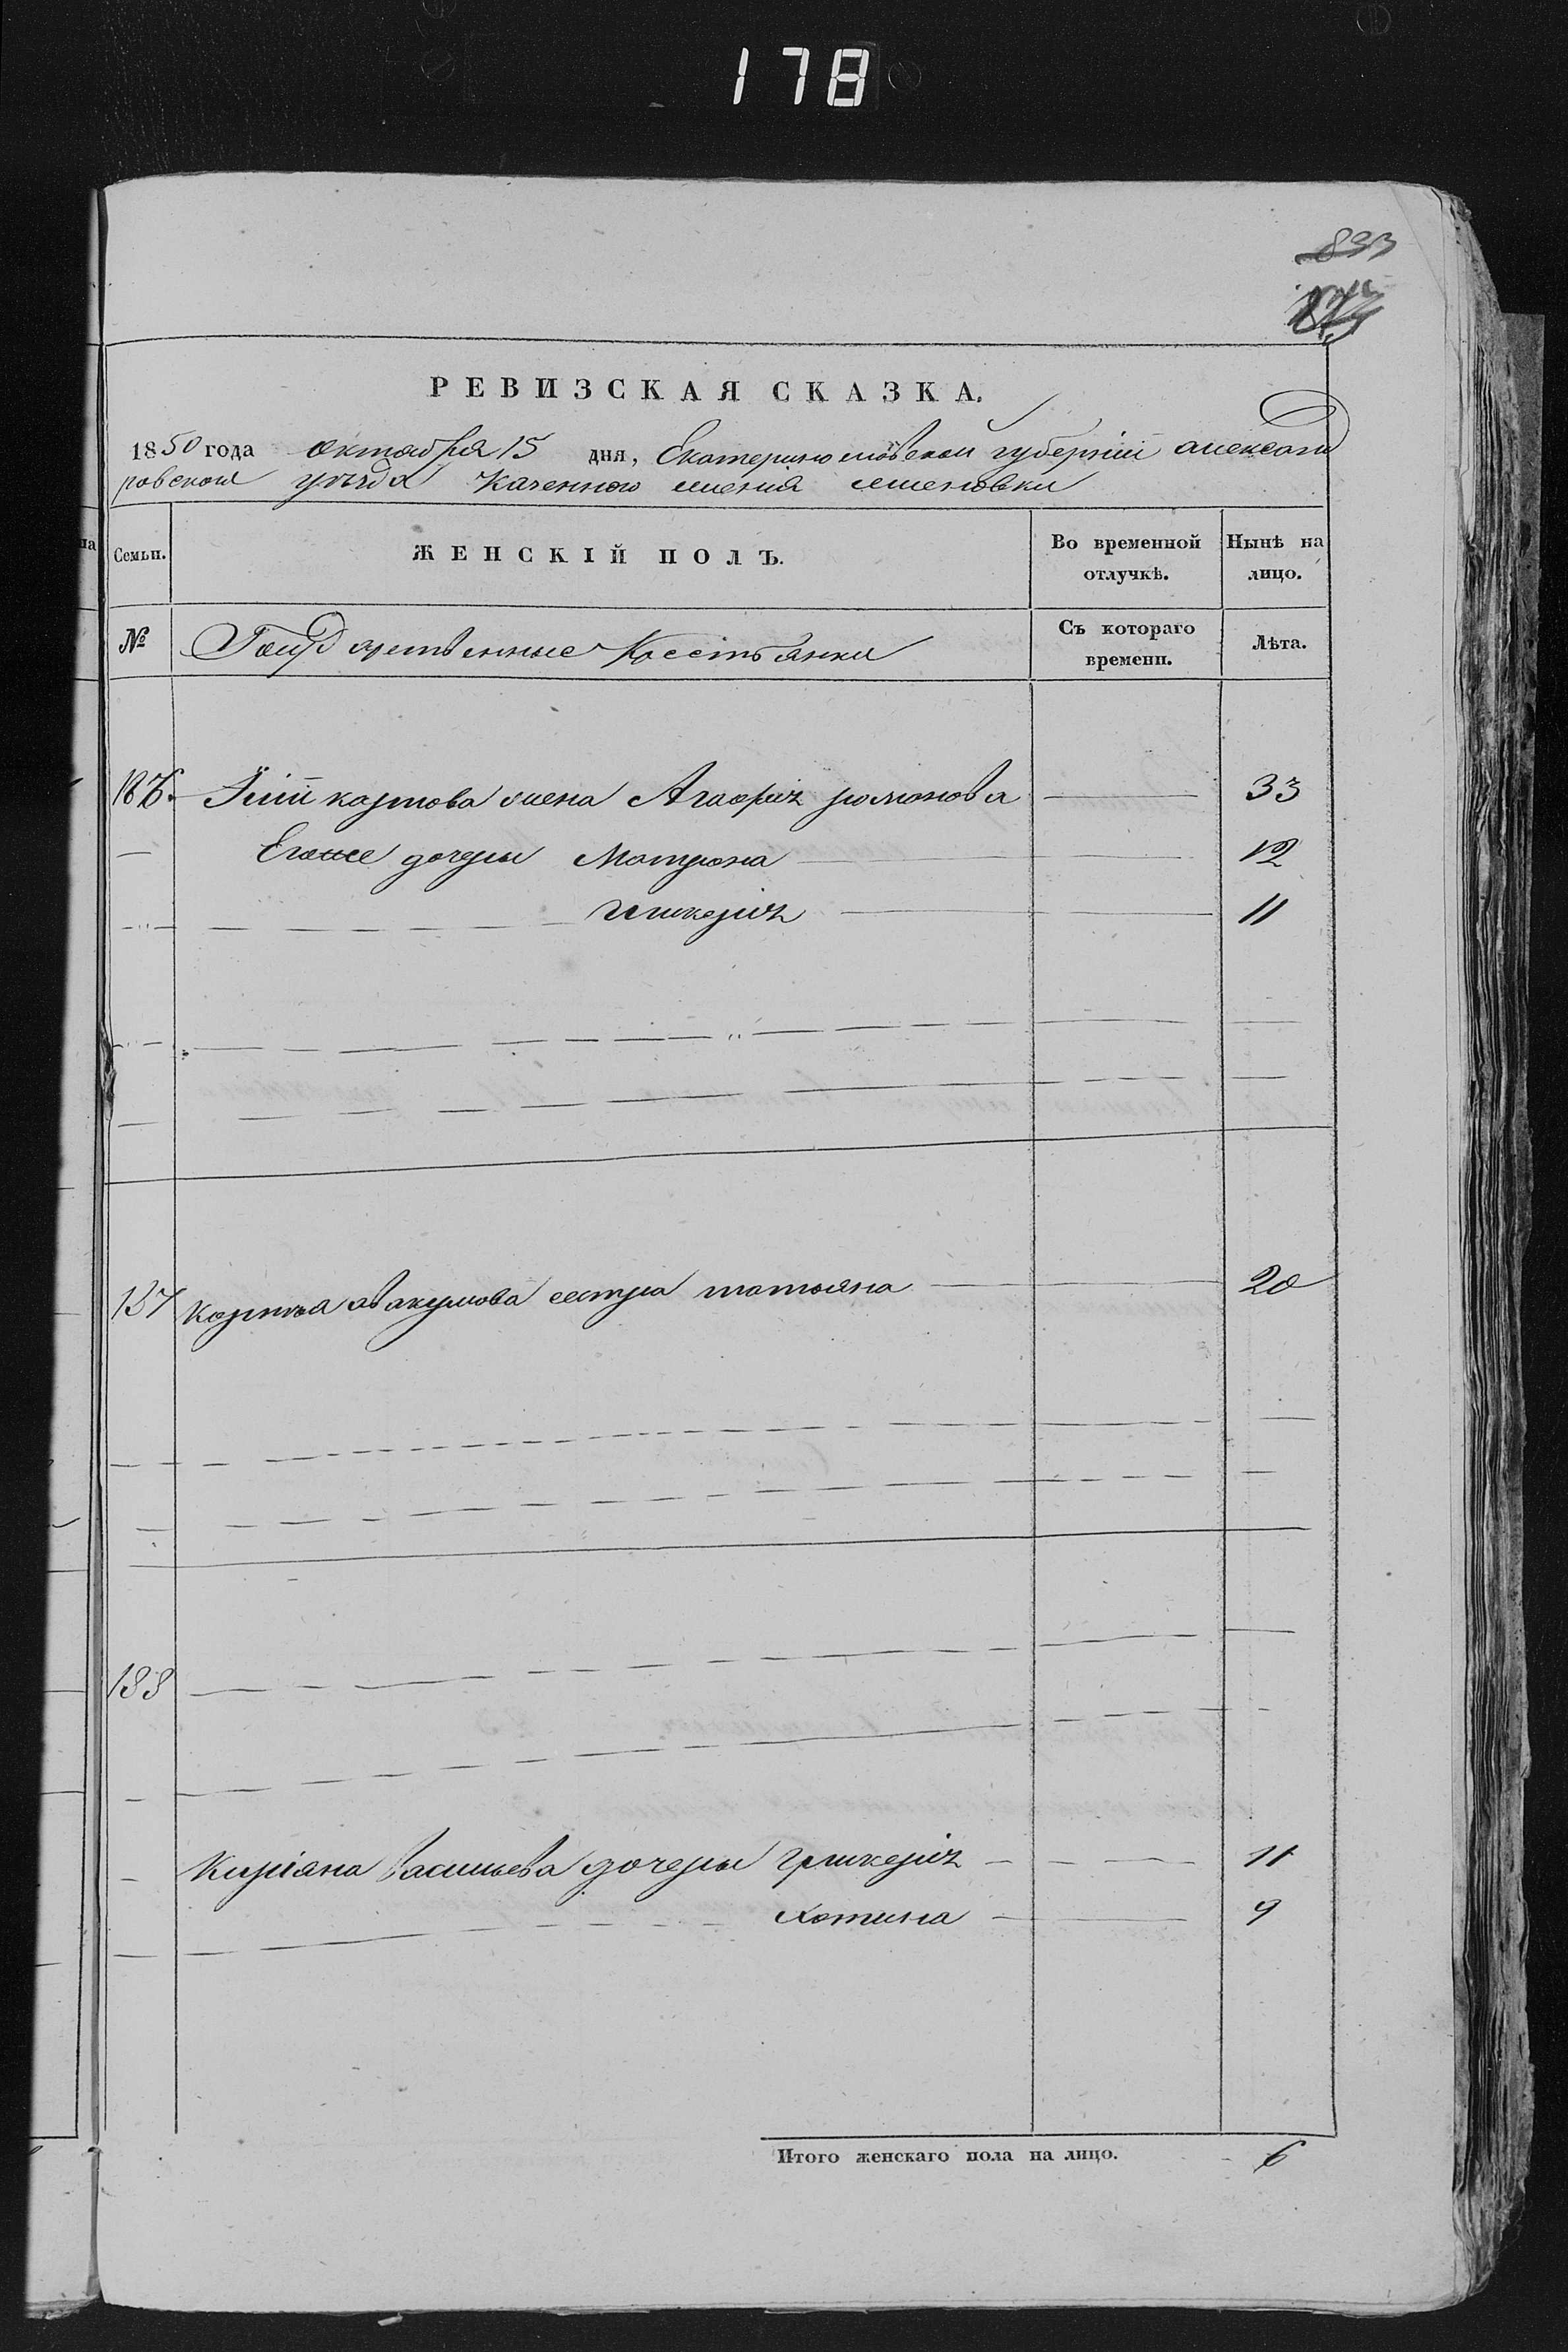 178
833
РЕВИЗСКАЯ СКАЗКА.
1850 года октября 15 дня, Екатеринославской губернии александ
ровского уезда Казенного имения семеновки
Семьи. ЖЕНСКІЙ ПОЛЪ. Во временной отлучкѣ. Нынѣ на лицо.
№ Государственные Крестьянки Съ котораго времени. Лѣта.
186. карпова жена Агафия романова 33
Егоже дочери Матрона 12
гликерия 11
187 Карпа авакумова сестра татьяна 20
188
Киріяна васильева дочери гликерия 11
хотина 9
Итого женскаго пола на лицо. 6